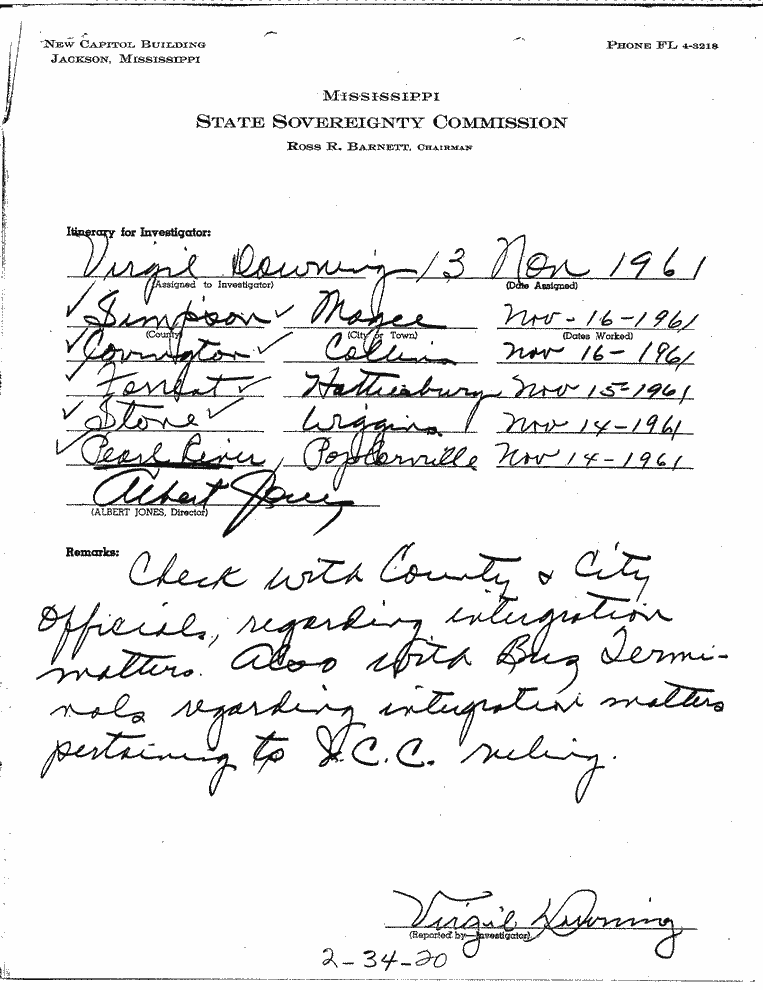 NEW CAPITOL BUILDING PHONE FL 4-3218
JACKSON, MISSISSIPPI
MISSISSIPPI
STATE SOVEREIGNTY COMMISSION
ROSS R. BARNETT, CHAIRMAN
Itinerary for Investigator:
Virgil Downing 13 Nov 1961
(Assigned to Investigator) (Date Assigned)
✓ Simpson ✓ Magee Nov-16-1961
(County) (City or Town) (Dates Worked)
✓ Covington ✓ Collins Nov 16-1961
✓ Forrest ✓ Hattiesburg Nov 15-1961
✓ Stone ✓ Wiggins Nov 14-1961
✓ Pearl River, Poplarville Nov 14-1961
Albert Jones
(ALBERT JONES, Director)
Remarks:
Check with County & City
Officials, regarding intergration
matters. Also with Bus Termi-
nals regarding intergration matters
pertaining to I.C.C. ruling.
Virgil Downing
(Reported by—Investigator)
2-34-20